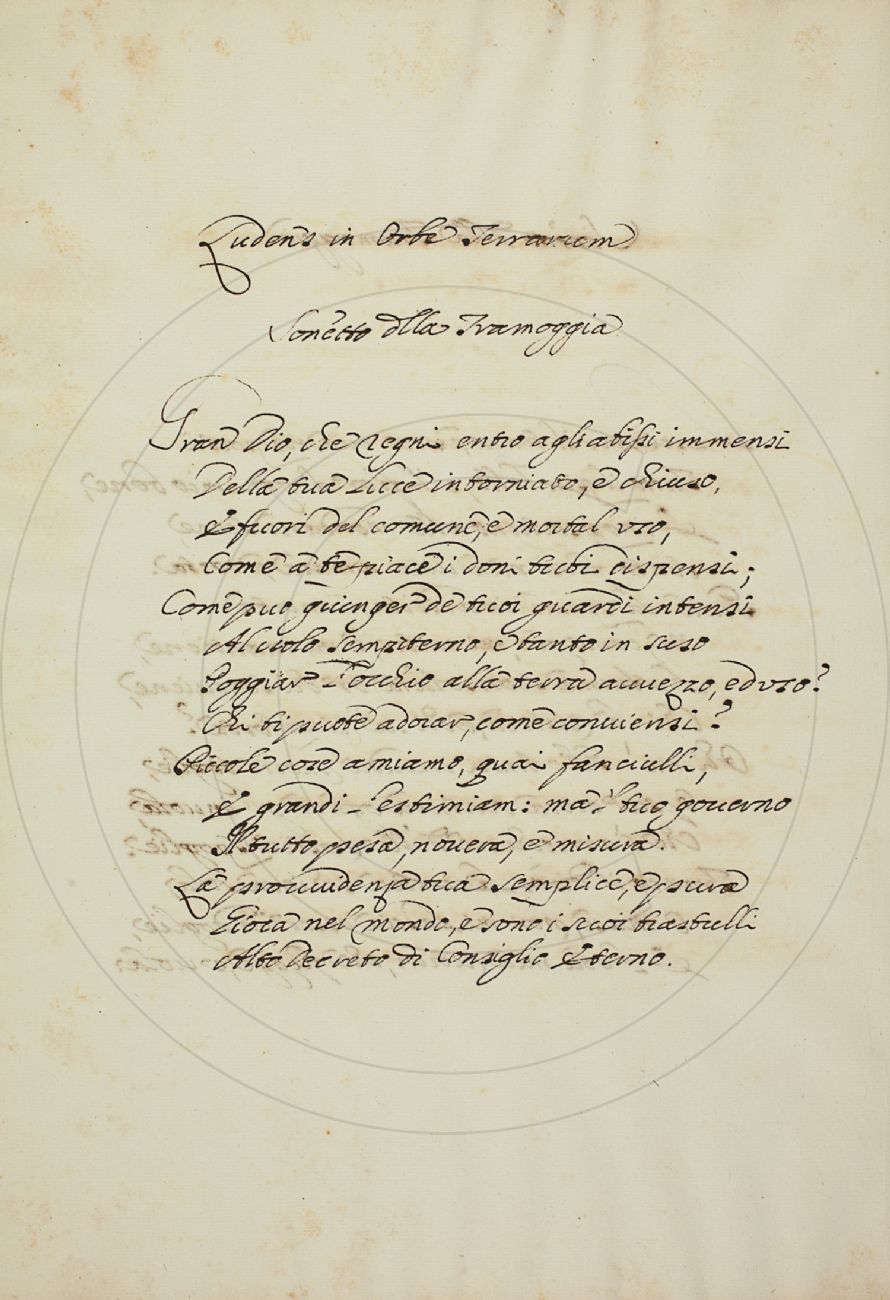 Ludens in Orbe Terrarum
Sonetto dlla Tramoggia
Gran Dio, che regni entro agli abissi immensi
Della tua Luce intorniato, e chiuso,
E fuori del comune, e mortal uso,
Come a te piace i doni tuoi dispensi;
Come puo giunger de tuoi guardi intensi
Al cuolo sempiterno, e tanto in suso
Poggiar l'occhio alla terra auuezzo, ed uso?
Chi ti puote adorar, come conuiensi?
Piccole cose amiamo, quai fanciulli,
E grandi l'estimiam: ma 'l tuo gouerno
Il tutto pesa, nouera, e misura.
La prouuidenza tua semplice, e pura
Gioca nel mondo, e sono i suoi trastulli
Alto Decreto di Consiglio Eterno.